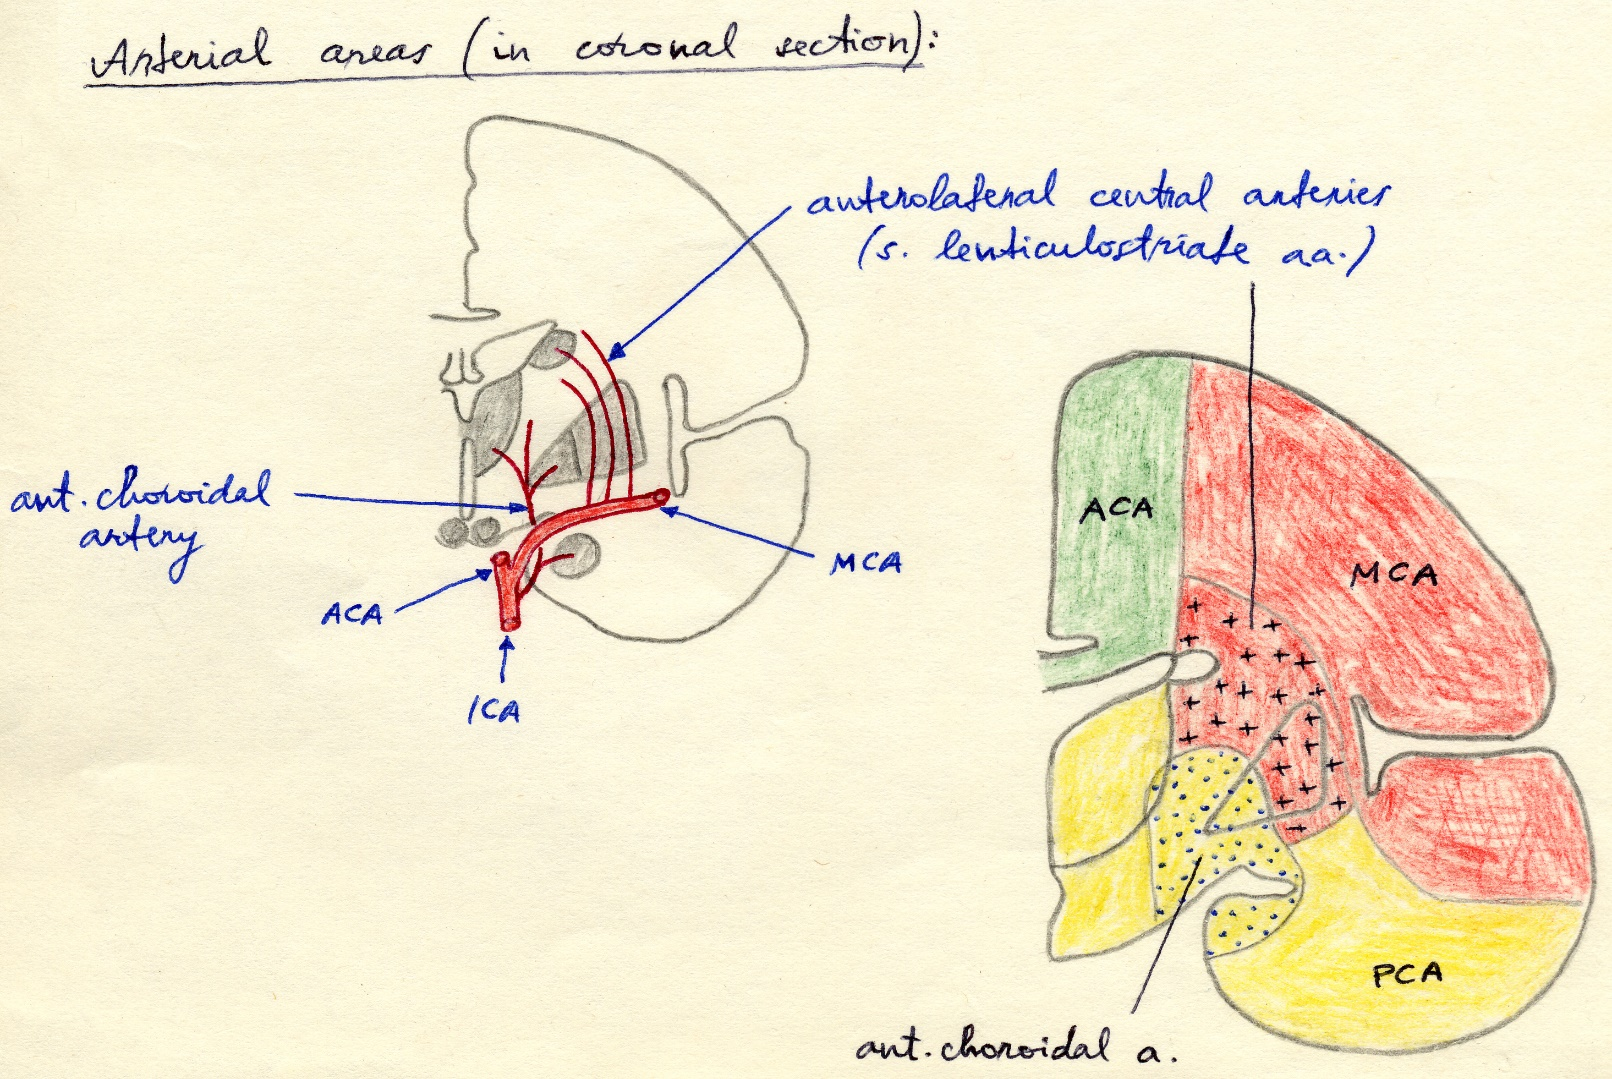 Arterial areas (in coronal section):
anterolateral central arteries
(s. lenticulostriate aa.)
ant. choroidal
artery
ACA
ICA
MCA
ACA
MCA
PCA
ant. choroidal a.